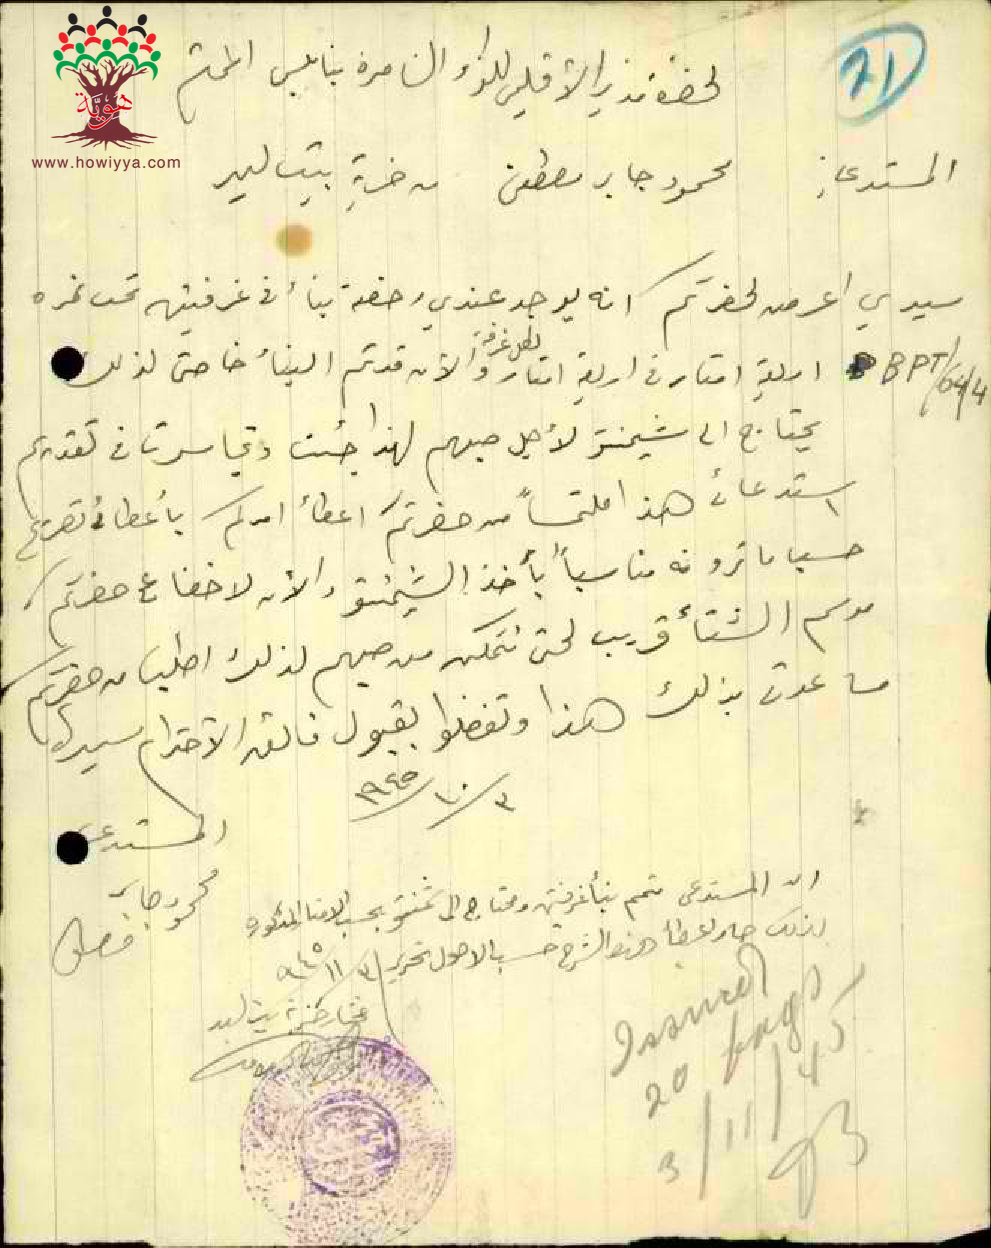 هوية
www.howiyya.com
21
لحضرة مدير الاقليمي للواء السامرة بنابلس المحترم
المستدعي محمود جابر مصطفى من خربة بيت ليد
سيدي اعرض لحضرتكم انه يوجد عندي رخصة بناء في غرفتين تحت نمره
BPT/64/4 اربعة امتار في اربعة امتار لكل غرفة والان قدتم البناء خاصتي لذلك
يحتاج الى شيمنتو لأجل صبهم لهذا جئت وتجاسرت في تقديم
استدعائي هذا ملتمساً من حضرتكم اعطاء امركم بأعطائي تصريح
حسبما ترونه مناسباً بأخذ الشيمنتو والأن لا خفاء حضرتكم
موسم الشتاء قريب لحتى نتمكن من صبهم لذلك اطلب من حضرتكم
مساعدتي بذلك هذا وتفضلوا بقبول فائق الاحترام سيدي
٣/١٠/١٩٤٥
المستدعي
محمود جابر
مصطفى
ان المستدعي متمم بناء غرفتين ومحتاج الى شمنتو بحسب
لذلك صار اعطاء هذا الشرح حسب الاصول تحريراً ٣/١١/٩٤٥
مختار خربة بيت ليد
Issued
20 bags
3/11/45